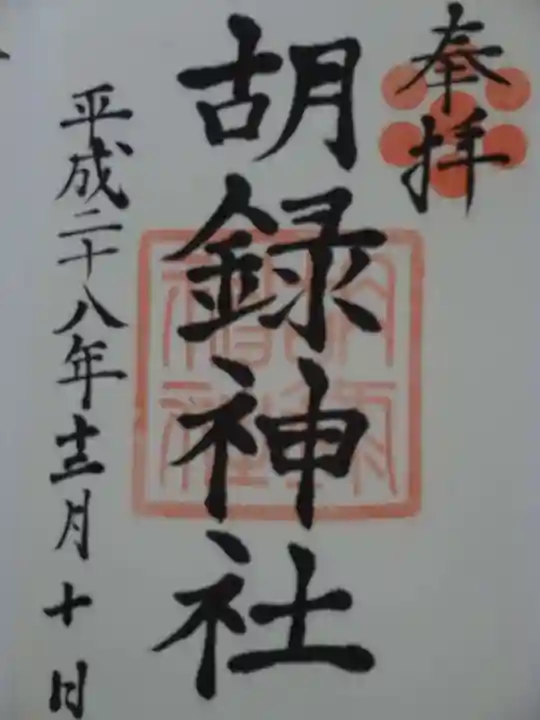 奉拝
胡録神社
平成二十八年十二月十日